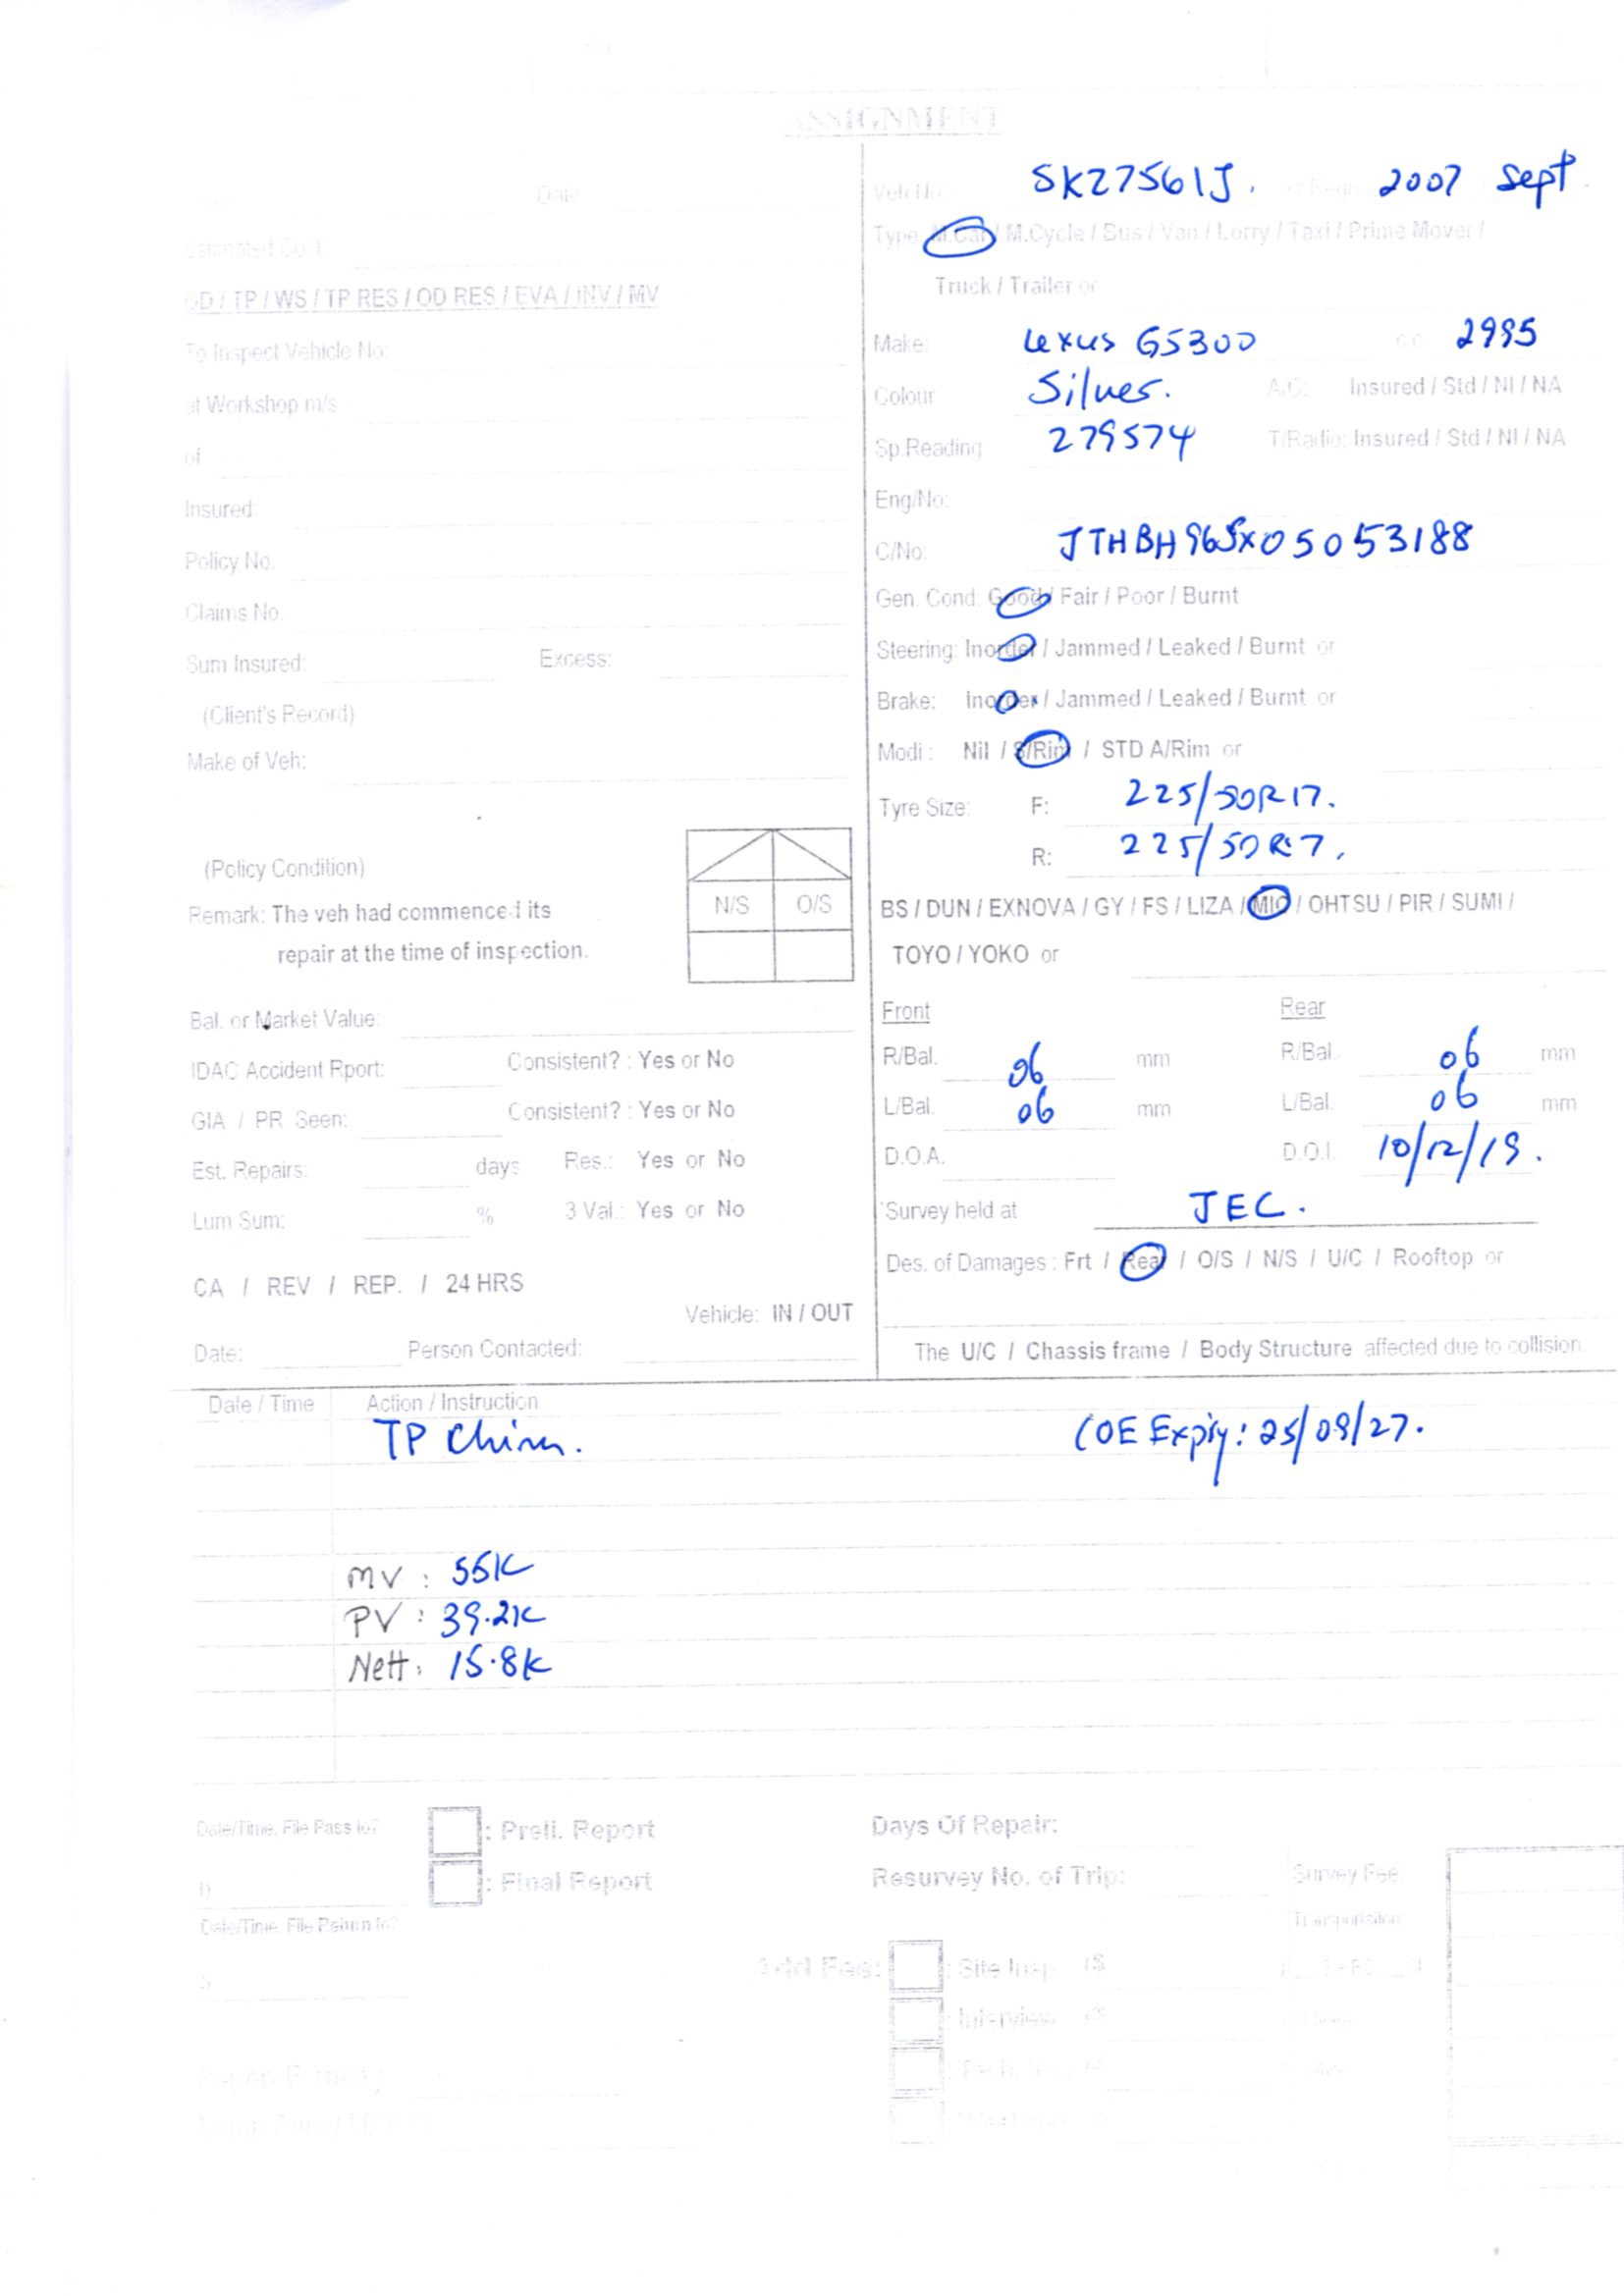 ASSIGNMENT
Date
Estimated Cost:
OD / TP / WS / TP RES / OD RES / EVA / INV / MV
To Inspect Vehicle No:
at Workshop m/s
of
Insured:
Policy No.
Claims No.
Sum Insured: Excess:
(Client's Record)
Make of Veh:
(Policy Condition)
Remark: The veh had commenced its
repair at the time of inspection.
N/S O/S
Bal. or Market Value:
IDAC Accident Rport: Consistent? : Yes or No
GIA / PR Seen: Consistent? : Yes or No
Est. Repairs: days Res.: Yes or No
Lum Sum: % 3 Val.: Yes or No
CA / REV / REP. / 24 HRS
Vehicle: IN / OUT
Date: Person Contacted:
Veh No SKZ7561J. 2007 Sept
Type: M.Car / M.Cycle / Bus / Van / Lorry / Taxi / Prime Mover /
Truck / Trailer or
Make: Lexus GS300 2995
Colour Silver. A/C: Insured / Std / NI / NA
Sp.Reading 279574 T/Radio: Insured / Std / NI / NA
Eng/No:
C/No: JTHBH96SX05053188
Gen. Cond: Good / Fair / Poor / Burnt
Steering: Inorder / Jammed / Leaked / Burnt or
Brake: Inorder / Jammed / Leaked / Burnt or
Modi : Nil / S/Rim / STD A/Rim or
Tyre Size: F: 225/50R17.
R: 225/50R17.
BS / DUN / EXNOVA / GY / FS / LIZA / MIC / OHTSU / PIR / SUMI /
TOYO / YOKO or
Front Rear
R/Bal. 06 mm R/Bal. 06 mm
L/Bal. 06 mm L/Bal. 06 mm
D.O.A. D.O.I. 10/12/19.
Survey held at JEC.
Des. of Damages : Frt / Rear / O/S / N/S / U/C / Rooftop or
The U/C / Chassis frame / Body Structure affected due to collision.
Date / Time Action / Instruction
TP COE Expiry: 25/09/27.
MV : 55K
PV : 39.2K
Nett: 15.8K
Date/Time, File Pass to? : Preli. Report Days Of Repair:
1) : Final Report Resurvey No. of Trip: Survey Fee:
Date/Time, File Return to? Transportation:
Add Fee: : Site Insp ($
: Interview